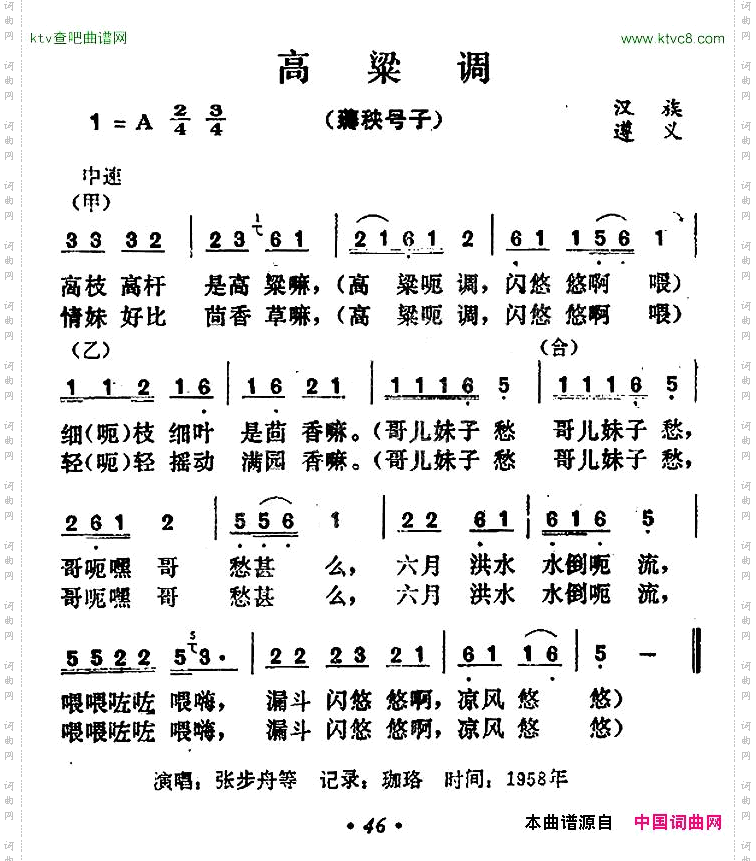 ktv查吧曲谱网
www.ktvc8.com
高粱调
1=A 2/4 3/4
(薅秧号子)
汉族
遵义
中速
(甲)
3 3 3 2 | 2 3 1 6 1 | 2 1 6 1 2 | 6 1 1 5 6 1 |
高枝高杆 是高粱嘛,(高 粱呃调,闪悠悠啊 喂)
情妹好比 茴香草嘛,(高 粱呃调,闪悠悠啊 喂)
(乙)
(合)
1 1 2 1 6 | 1 6 2 1 | 1 1 1 6 5 | 1 1 1 6 5 |
细(呃)枝细叶 是茴香嘛。(哥儿妹子愁 哥儿妹子愁,
轻(呃)轻摇动 满园香嘛。(哥儿妹子愁 哥儿妹子愁,
2 6 1 2 | 5 5 6 1 | 2 2 6 1 | 6 1 6 5 |
哥呃嘿哥 愁甚么,六月洪水 水倒呃流,
哥呃嘿哥 愁甚么,六月洪水 水倒呃流,
5 5 2 2 5 5 3· | 2 2 2 3 2 1 | 6 1 1 6 | 5 —
喂喂咗咗喂嗨,漏斗闪悠悠啊,凉风悠 悠)
喂喂咗咗喂嗨,漏斗闪悠悠啊,凉风悠 悠)
演唱:张步舟等 记录:珈珞 时间:1958年
·46·
本曲谱源自 中国词曲网